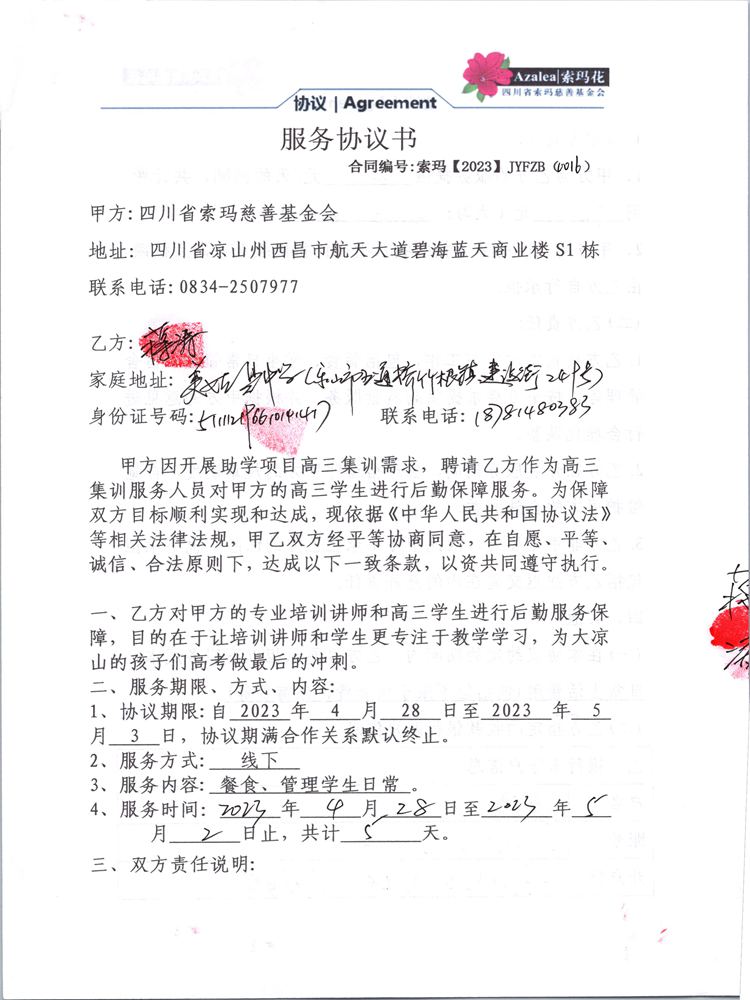 Azalea|索玛花
四川省索玛慈善基金会
协议 | Agreement
服务协议书
合同编号:索玛【2023】JYFZB (0016)
甲方:四川省索玛慈善基金会
地址: 四川省凉山州西昌市航天大道碧海蓝天商业楼 S1 栋
联系电话:0834-2507977
乙方:蒋涛
家庭地址: 美姑县中学(乐山市五通桥竹根镇建设街249号)
身份证号码: 联系电话: 18781480383
甲方因开展助学项目高三集训需求，聘请乙方作为高三
集训服务人员对甲方的高三学生进行后勤保障服务。为保障
双方目标顺利实现和达成，现依据《中华人民共和国协议法》
等相关法律法规，甲乙双方经平等协商同意，在自愿、平等、
诚信、合法原则下，达成以下一致条款，以资共同遵守执行。
一、乙方对甲方的专业培训讲师和高三学生进行后勤服务保
障，目的在于让培训讲师和学生更专注于教学学习，为大凉
山的孩子们高考做最后的冲刺。
二、服务期限、方式、内容:
1、协议期限:自 2023 年 4 月 28 日至 2023 年 5
月 3 日，协议期满合作关系默认终止。
2、服务方式: 线下
3、服务内容: 餐食、管理学生日常 。
4、服务时间: 2023 年 4 月 28 日至 2023 年 5
月 2 日止，共计 5 天。
三、双方责任说明:
蒋
涛